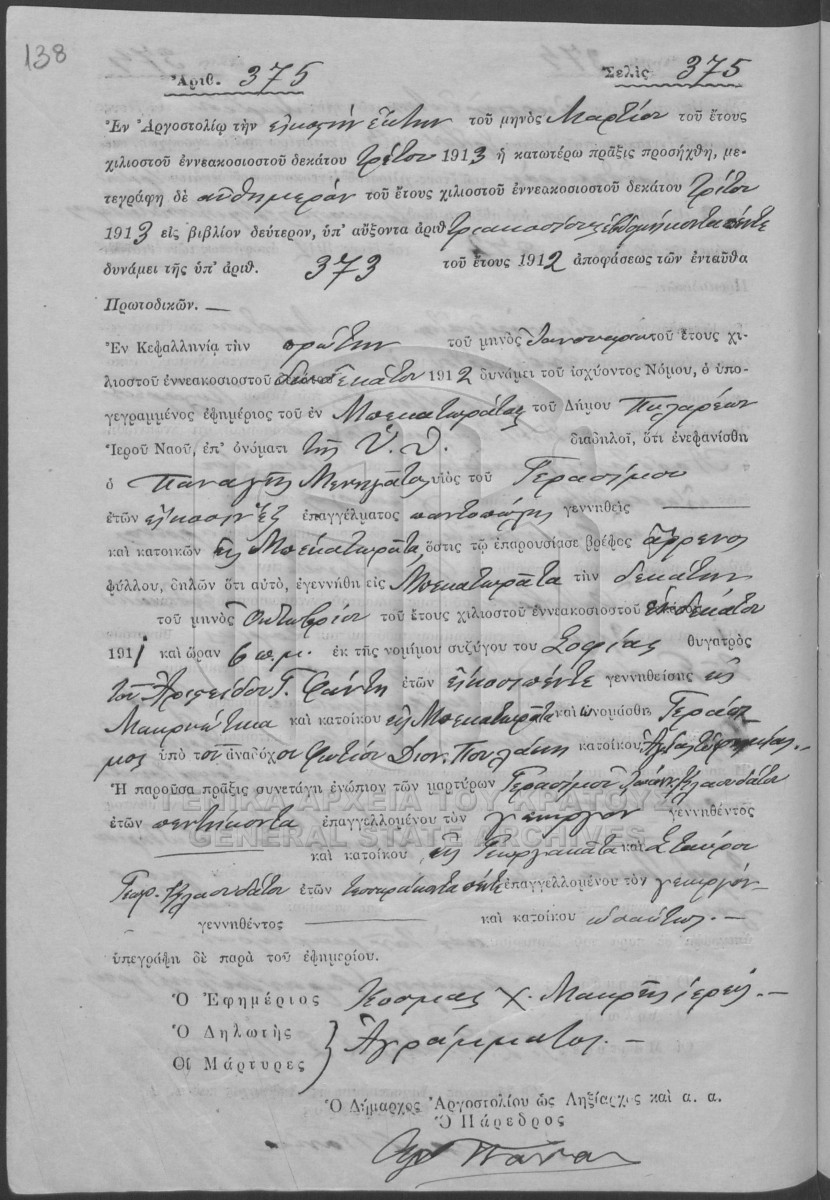 138
Ἀριθ. 375 Σελὶς 375
Ἐν Ἀργοστολίῳ τὴν εἰκοστὴν ἕκτην τοῦ μηνὸς Μαρτίου τοῦ ἔτους
χιλιοστοῦ ἐννεακοσιοστοῦ δεκάτου τρίτου 1913 ἡ κατωτέρω πρᾶξις προσήχθη, με-
τεγράφη δὲ αὐθημερὸν τοῦ ἔτους χιλιοστοῦ ἐννεακοσιοστοῦ δεκάτου τρίτου
1913 εἰς βιβλίον δεύτερον, ὑπ' αὔξοντα ἀριθ τριακόσια ἑβδομήκοντα πέντε
δυνάμει τῆς ὑπ' ἀριθ. 373 τοῦ ἔτους 1912 ἀποφάσεως τῶν ἐνταῦθα
Πρωτοδικῶν. —
Ἐν Κεφαλληνίᾳ τὴν πρώτην τοῦ μηνὸς Ἰανουαρίου τοῦ ἔτους χι-
λιοστοῦ ἐννεακοσιοστοῦ δωδεκάτου 1912 δυνάμει τοῦ ἰσχύοντος Νόμου, ὁ ὑπο-
γεγραμμένος ἐφημέριος τοῦ ἐν Μπεκατωράτα τοῦ Δήμου Πυλαρέων
Ἱεροῦ Ναοῦ, ἐπ' ὀνόματι τῆς Ὑ. Θ. διαδηλοῖ, ὅτι ἐνεφανίσθη
ὁ Παναγῆς υἱὸς τοῦ Γερασίμου
ἐτῶν εἰκοσιὲξ ἐπαγγέλματος παντοπώλης γεννηθεὶς —
καὶ κατοικῶν εἰς Μπεκατωράτα, ὅστις τῷ ἐπαρουσίασε βρέφος ἄρρενος
φύλλου, δηλῶν ὅτι αὐτὸ, ἐγεννήθη εἰς Μπεκατωράτα τὴν δεκάτην
τοῦ μηνὸς Ὀκτωβρίου τοῦ ἔτους χιλιοστοῦ ἐννεακοσιοστοῦ ἑνδεκάτου
1911 καὶ ὥραν 6 π.μ. ἐκ τῆς νομίμου συζύγου του Σοφίας θυγατρὸς
τοῦ Ἀριστείδου Γ. ἐτῶν εἰκοσιπέντε γεννηθείσης εἰς
Μακρυώτικα καὶ κατοίκου εἰς Μπεκατωράτα καὶ ὠνομάσθη Γεράσι-
μος ὑπὸ τοῦ ἀναδόχου Φωτίου Διον. κατοίκου
Ἡ παροῦσα πρᾶξις συνετάγη ἐνώπιον τῶν μαρτύρων Γερασίμου
ἐτῶν πεντήκοντα ἐπαγγελλομένου τὸν γεωργὸν γεννηθέντος
— καὶ κατοίκου εἰς καὶ Σταύρου
Γερ. ἐτῶν τεσσαράκοντα πέντε ἐπαγγελλομένου τὸν γεωργὸν
γεννηθέντος — καὶ κατοίκου ὡσαύτως. —
ὑπεγράφη δὲ παρὰ τοῦ ἐφημερίου.
Ὁ Ἐφημέριος Κοσμᾶς Χ. Μακρῆς ἱερεύς. —
Ὁ Δηλωτὴς
Οἱ Μάρτυρες } Ἀγράμματοι. —
Ὁ Δήμαρχος Ἀργοστολίου ὡς Ληξίαρχος καὶ α. α.
Ὁ Πάρεδρος
ΓΕΝΙΚΑ ΑΡΧΕΙΑ ΤΟΥ ΚΡΑΤΟΥΣ
GENERAL STATE ARCHIVES